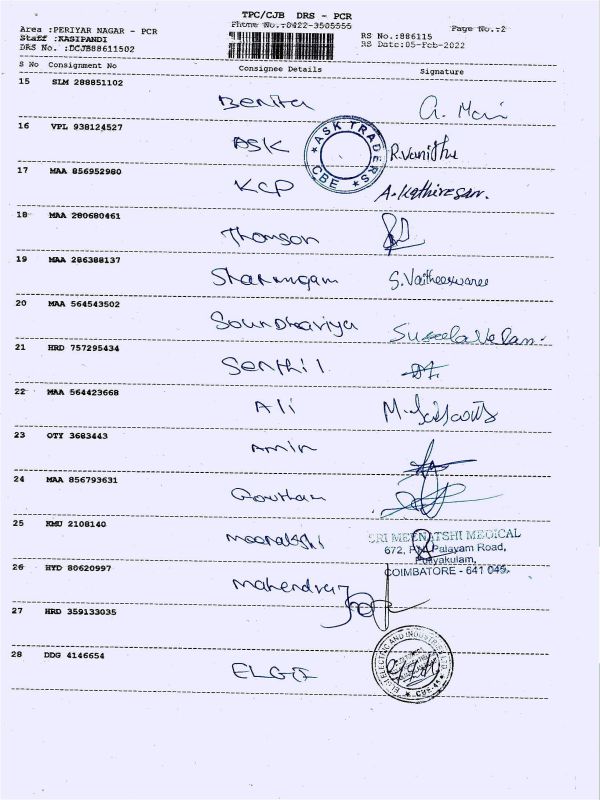 TPC/CJB DRS - PCR
Area :PERIYAR NAGAR - PCR
Phone No.:0422-3505555
Page No.:2
Staff :KASIPANDI
RS No.:886115
DRS No. :DCJB88611502
RS Date:05-Feb-2022
S No Consignment No Consignee Details Signature
15 SLM 288851102
Benita A. Mari
16 VPL 938124527
ASK R.Vanitha
ASK TRADERS CBE
17 MAA 856952980
KCP A.Kathiresan.
18 MAA 280680461
Thomson
19 MAA 286388137
Shanmugam S.Vaitheeswaree
20 MAA 564543502
Soundhariya Suseela Velan.
21 HRD 757295434
Senthil
22 MAA 564423668
Ali M.
23 OTY 3683443
Amin
24 MAA 856793631
Gowtham
25 KMU 2108140
Meenatshi
SRI MEENATSHI MEDICAL
672, Palayam Road,
Puliyakulam,
COIMBATORE - 641 045.
26 HYD 80620997
Mahendran
27 HRD 359133035
28 DDG 4146654
ELGI
ELGI ELECTRIC AND INDUSTRIES LTD. CBE-45